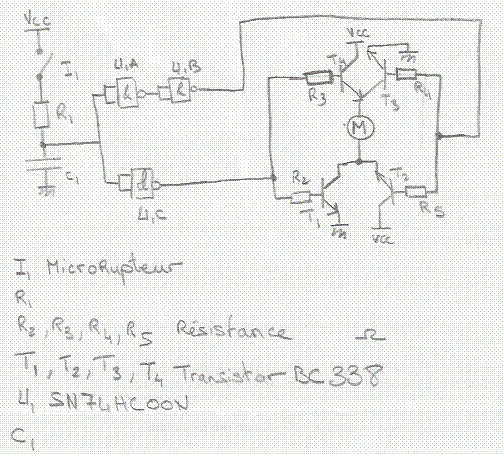 Vcc
I1
R1
C1
U1A
U1B
&
&
&
U1C
Vcc
T4
R3
T3
R4
M
R2
T1
T2
R5
Vcc
I1 MicroRupteur
R1
R2, R3, R4, R5 Résistance Ω
T1, T2, T3, T4 Transistor BC 338
U1 SN74HC00N
C1